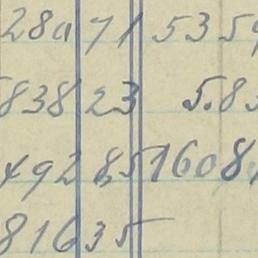 280 71 535
838 23 5.8
492 85 1608
816 35